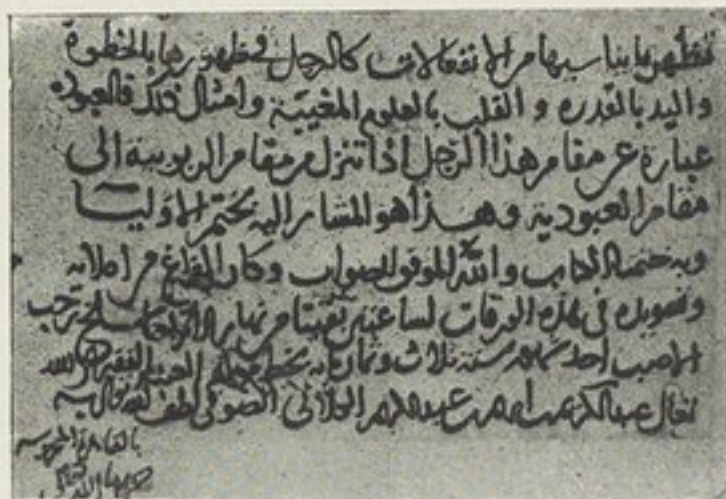 فتظهر بما يناسبها من الانفعالات كالرجل فظهورها بالخطوة
واليد بالقدرة والقلب بالعلوم المغيبة وامثال ذلك فالعبودة
عبارة عن مقام هذا الرجل اذا تنزل من مقام الربوبية الى
مقام العبودية وهذا هو المشار اليه بختم الاوليا
وبه ختمنا الكتاب والله الموفق للصواب وكان الفراغ من املائه
في هذه الورقات لساعتين بقيتا من نهار رجب
الاصب احد سنة ثلاث وثمانمايه بخط الفقير الى الله
تعالى عبد الكريم الصوفي لطف الله به
بالقاهرة المحروسة